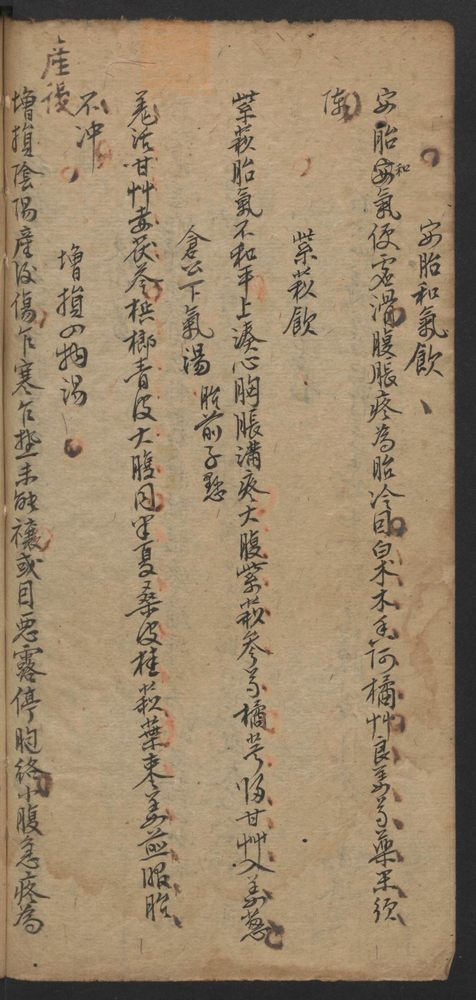 安胎和氣飲
安胎和氣便虛滑腹脹疼為胎冷目白术木香诃橘艸良姜芍藥米須
陳
紫蘇飲
紫蘇胎氣不和平上湊心胸脹滿疼大腹紫蘇參芎橘芍歸甘艸入姜葱
倉公下氣湯 胎前子懸
羗活甘艸赤茯苓槟榔青皮大腹同半夏桑皮桂蘇葉枣姜煎服胎
不冲
增損四物湯
產後
增損陰陽產後傷乍寒乍熱未能禳或目惡露停胞絡小腹急疼為